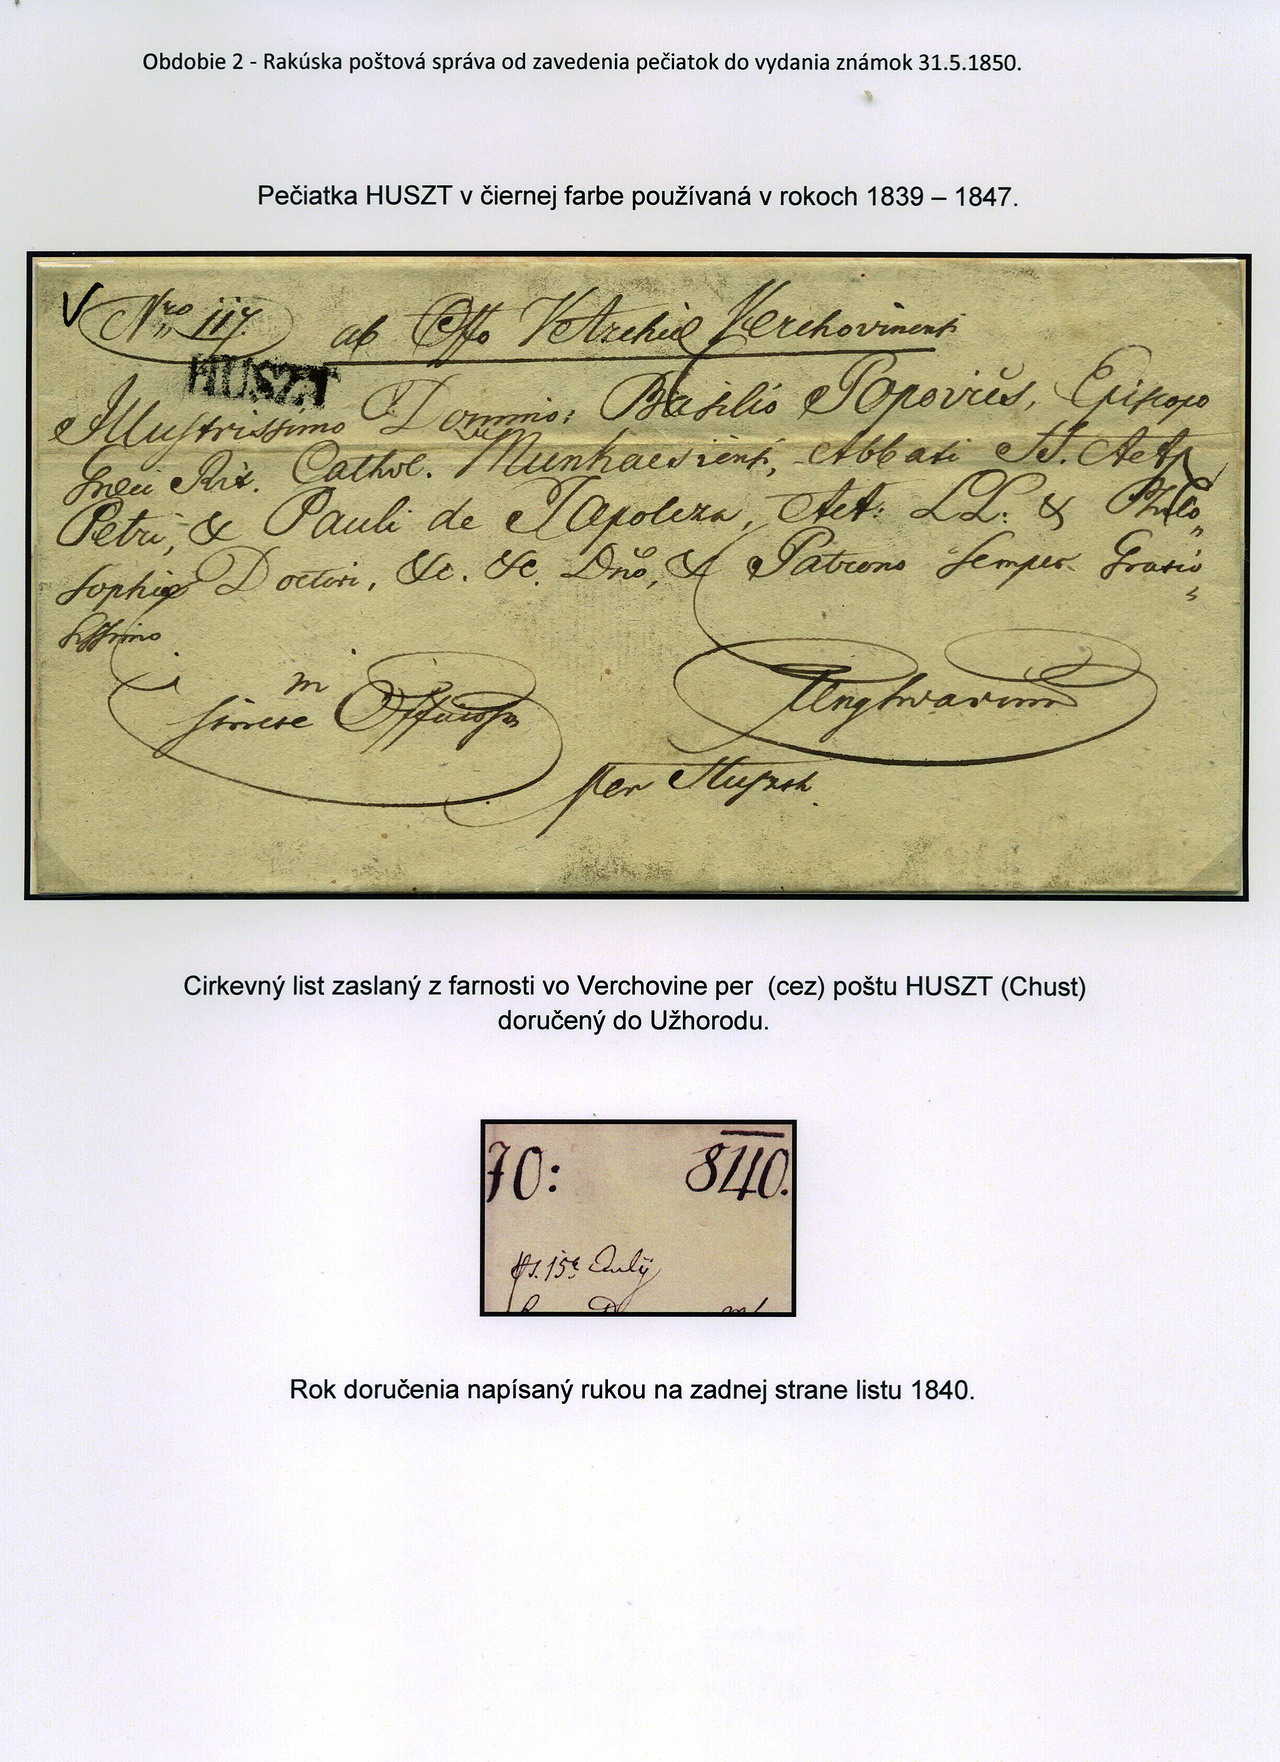 Obdobie 2 - Rakúska poštová správa od zavedenia pečiatok do vydania známok 31.5.1850.
Pečiatka HUSZT v čiernej farbe používaná v rokoch 1839 – 1847.
V Nro 117. ab Offo VArchid Verchovinensi
HUSZT
Illustrissimo Domino: Basilio Popovics, Episcopo
Graeci Rit. Cathol. Munkacsiensi, Abbati SS. App
Petri, & Pauli de Tapolcza, AA: LL: & Philo„
sophiae Doctori, &c. &c. Dno, & Patrono semper Gratio„
sissimo
in
Officiosis
Unghvarini
per Huszth.
Cirkevný list zaslaný z farnosti vo Verchovine per (cez) poštu HUSZT (Chust)
doručený do Užhorodu.
70: 840.
15a July
Rok doručenia napísaný rukou na zadnej strane listu 1840.